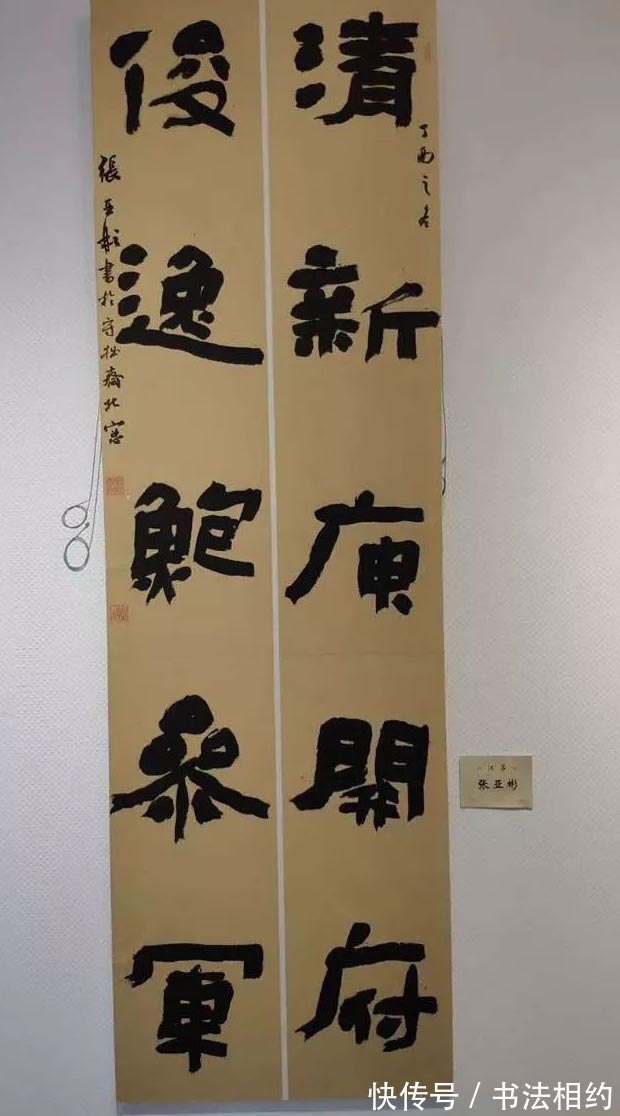 清新庾開府
丁酉之冬
俊逸鮑參軍
張亞彬書於守拙齋北窗
江苏
张亚彬
快传号 / 书法相约